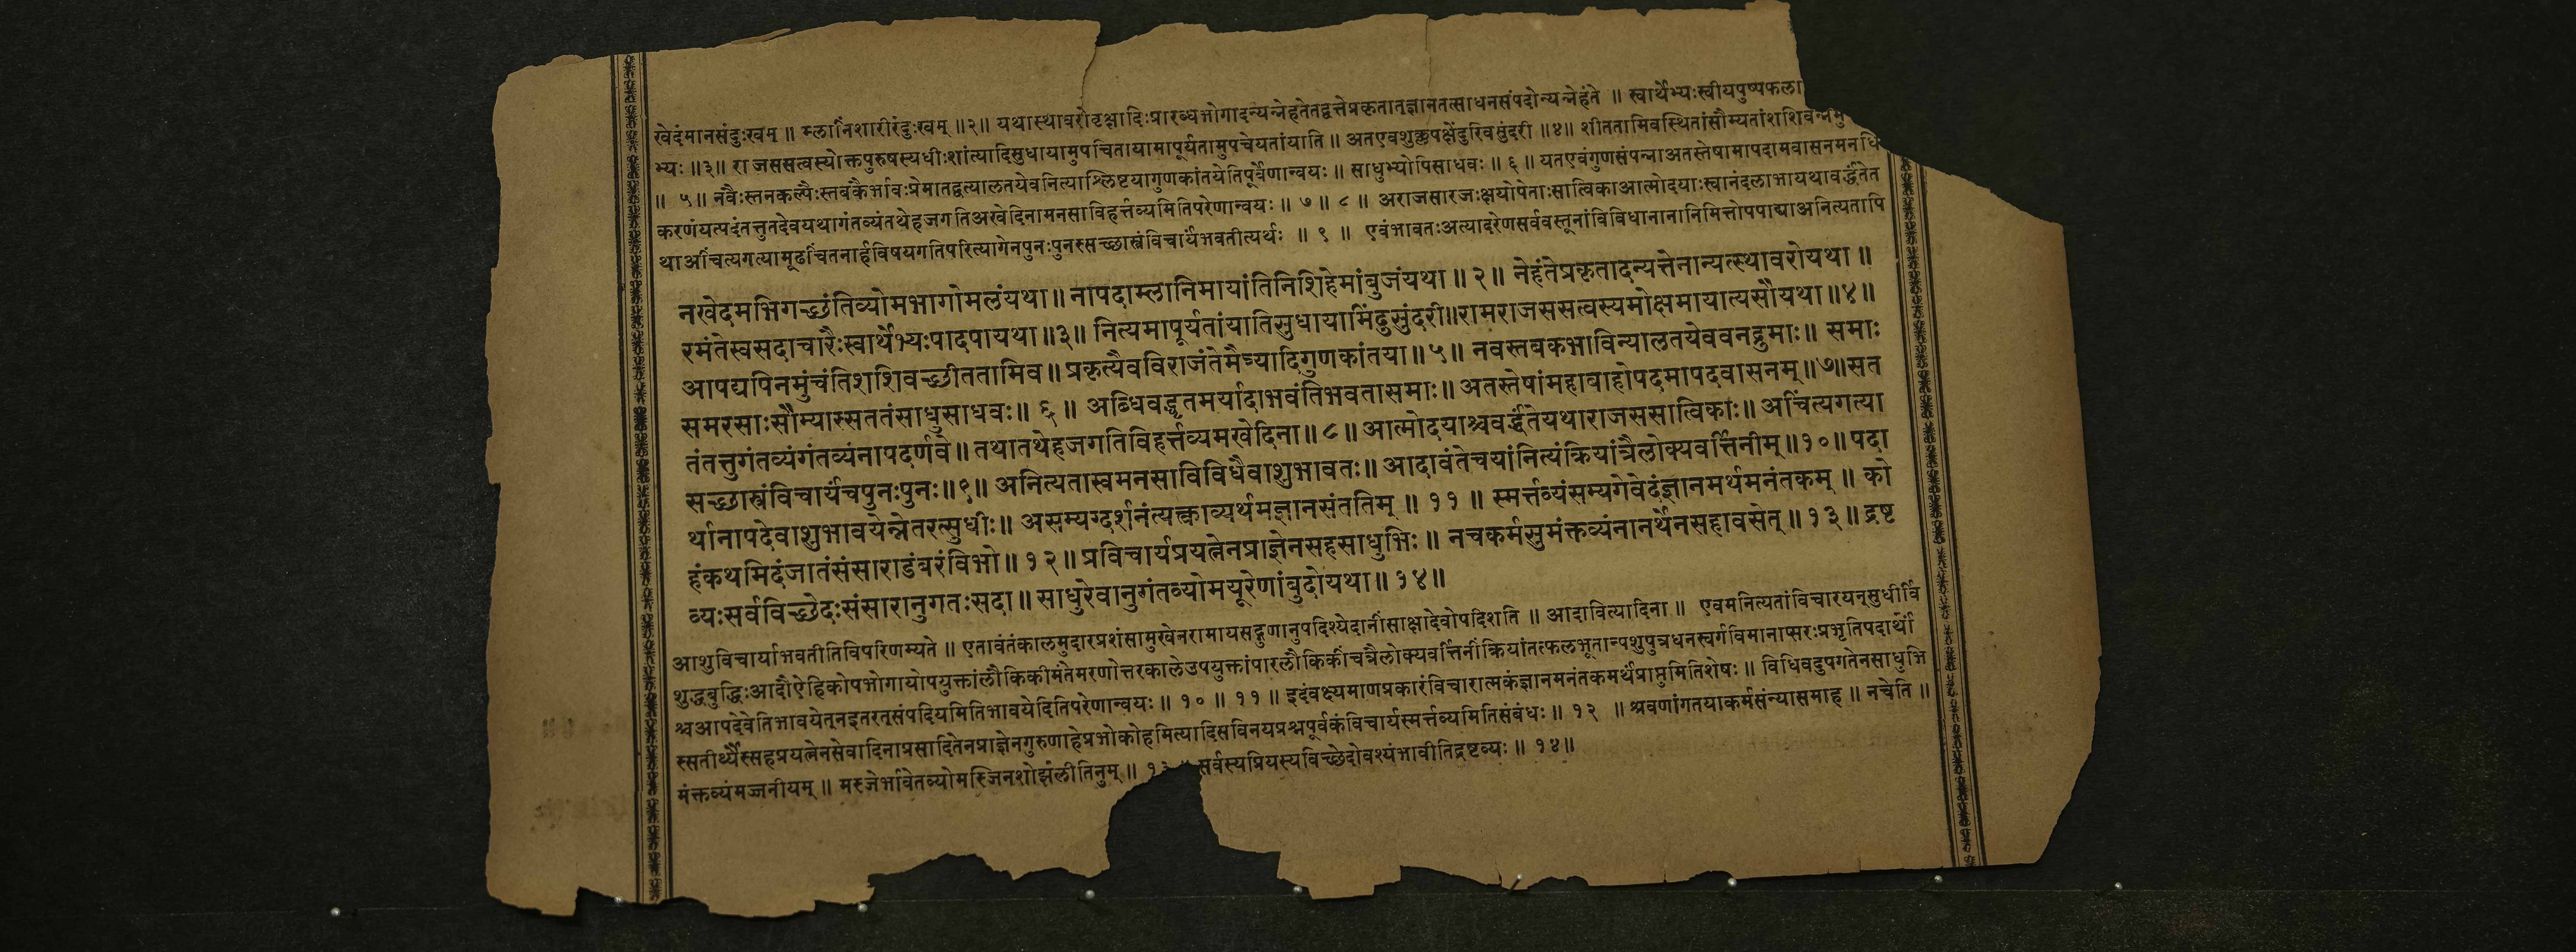 खेदंमानसंदुःखम् ॥ म्लानिंशारीरंदुःखम् ॥२॥ यथास्थावरोवृक्षादिःप्रारब्धभोगादन्यन्नेहतेतद्वत्तेप्रकृतात्ज्ञानतत्साधनसंपदोन्यन्नेहंते ॥ स्वार्थेभ्यःस्वीयपुष्पफला
भ्यः ॥३॥ राजससत्वस्योक्तपुरुषस्यधीःशांत्यादिसुधायामुपचितायामापूर्यतामुपचेयतांयाति ॥ अतएवशुक्लपक्षेंदुरिवसुंदरी ॥४॥ शीततामिवस्थितांसौम्यतांशशिवन्नमु
॥ ५॥ नवैःस्तनकल्पैःस्तबकैर्भावःप्रेमातद्वत्यालतयेवनित्याश्लिष्टयागुणकांतयेतिपूर्वेणान्वयः ॥ साधुभ्योपिसाधवः ॥ ६ ॥ यतएवंगुणसंपन्नाअतस्तेषामापदामवासनमनधि
करणंयत्पदंतत्तुतदेवयथागंतव्यंतथेहजगतिअखेदिनामनसाविहर्त्तव्यमितिपरेणान्वयः ॥ ७ ॥ ८ ॥ अराजसारजःक्षयोपेताःसात्विकाआत्मोदयाःस्वानंदलाभायथावर्द्धंतेत
थाअचिंत्यगत्यामूढचिंतनार्हविषयगतिपरित्यागेनपुनःपुनस्सच्छास्त्रंविचार्यंभवतीत्यर्थः ॥ ९ ॥ एवंभावतःअत्यादरेणसर्ववस्तूनांविविधानानानिमित्तोपपाद्याअनित्यतापि
नखेदमभिगच्छंतिव्योमभागोमलंयथा॥ नापदाम्लानिमायांतिनिशिहेमांबुजंयथा ॥ २॥ नेहंतेप्रकृतादन्यत्तेनान्यत्स्थावरोयथा ॥
रमंतेस्वसदाचारैःस्वार्थेभ्यःपादपायथा ॥३॥ नित्यमापूर्यतांयातिसुधायामिंदुसुंदरी॥रामराजससत्वस्यमोक्षमायात्यसौयथा ॥४॥
आपद्यपिनमुंचंतिशशिवच्छीततामिव॥ प्रकृत्यैवविराजंतेमैत्र्यादिगुणकांतया॥ ५॥ नवस्तबकभाविन्यालतयेववनद्रुमाः॥ समाः
समरसाःसौम्यास्सततंसाधुसाधवः॥ ६ ॥ अब्धिवद्धृतमर्यादाभवंतिभवतासमाः॥ अतस्तेषांमहाबाहोपदमापदवासनम्॥७॥सत
तंतत्तुगंतव्यंगंतव्यंनापदर्णवे॥ तथातथेहजगतिविहर्त्तव्यमखेदिना॥ ८॥ आत्मोदयाश्चवर्द्धंतेयथाराजससात्विकाः॥ अचिंत्यगत्या
सच्छास्त्रंविचार्यंचपुनःपुनः॥९॥ अनित्यतास्वमनसाविविधैवाशुभावतः॥ आदावंतेचयांनित्यंक्रियांत्रैलोक्यवर्त्तिनीम्॥१०॥ पदा
र्थानापदेवाशुभावयेन्नेतरत्सुधीः॥ असम्यग्दर्शनंत्यक्त्वाव्यर्थमज्ञानसंततिम् ॥ ११ ॥ स्मर्त्तव्यंसम्यगेवेदंज्ञानमर्थमनंतकम् ॥ को
हंकथमिदंजातंसंसाराडंबरंविभो॥ १२॥ प्रविचार्यप्रयत्नेनप्राज्ञेनसहसाधुभिः॥ नचकर्मसुमंक्तव्यंनानर्थेनसहावसेत्॥ १३॥ द्रष्ट
व्यःसर्वविच्छेदःसंसारानुगतःसदा॥ साधुरेवानुगंतव्योमयूरेणांबुदोयथा॥ १४॥
आशुविचार्याभवतीतिविपरिणम्यते ॥ एतावंतंकालमुदारप्रशंसामुखेनरामायसद्गुणानुपदिश्येदानींसाक्षादेवोपदिशति ॥ आदावित्यादिना ॥ एवमनित्यतांविचारयन्सुधीर्वि
शुद्धबुद्धिःआदौऐहिकोपभोगायोपयुक्तांलौकिकीमंतेमरणोत्तरकालेउपयुक्तांपारलौकिकींचत्रैलोक्यवर्त्तिनींक्रियांतत्फलभूतान्पशुपुत्रधनस्वर्गविमानाप्सरःप्रभृतिपदार्थां
श्चआपदेवेतिभावयेत्नइतरत्संपदियमितिभावयेदितिपरेणान्वयः ॥ १० ॥ ११ ॥ इदंवक्ष्यमाणप्रकारंविचारात्मकंज्ञानमनंतकमर्थंप्राप्तुमितिशेषः ॥ विधिवदुपगतेनसाधुभि
स्सतीर्थ्यैस्सहप्रयत्नेनसेवादिनाप्रसादितेनप्राज्ञेनगुरुणाहेप्रभोकोहमित्यादिसविनयप्रश्नपूर्वकंविचार्यस्मर्त्तव्यमितिसंबंधः ॥ १२ ॥ श्रवणांगतयाकर्मसंन्यासमाह ॥ नचेति ॥
मंक्तव्यंमज्जनीयम् ॥ मस्जेर्भावेतव्योमस्जिनशोर्झलीतिनुम् ॥ १३ ॥ सर्वस्यप्रियस्यविच्छेदोवश्यंभावीतिद्रष्टव्यः ॥ १४॥